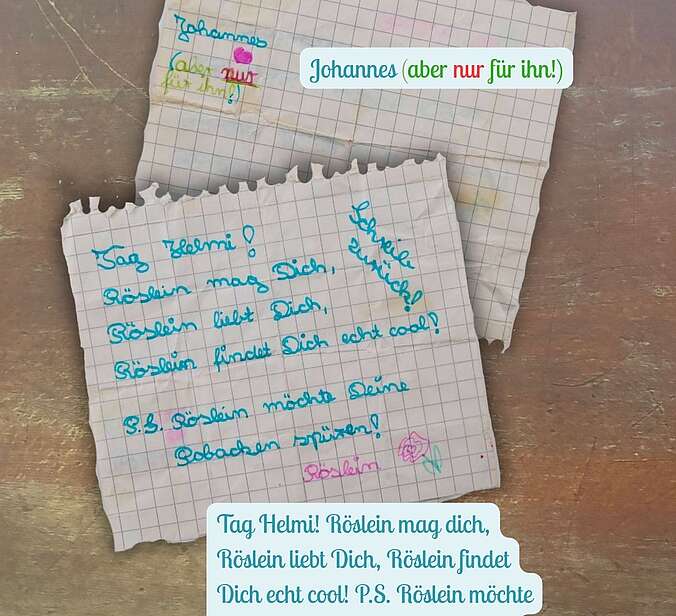 Johannes
(aber nur
für ihn!)
Johannes (aber nur für ihn!)
Tag Helmi!
Schreib
zurück!
Röslein mag Dich,
Röslein liebt Dich,
Röslein findet Dich echt cool!
P.S. Röslein möchte Deine
Pobacken spüren!
Röslein
Tag Helmi! Röslein mag dich,
Röslein liebt Dich, Röslein findet
Dich echt cool! P.S. Röslein möchte